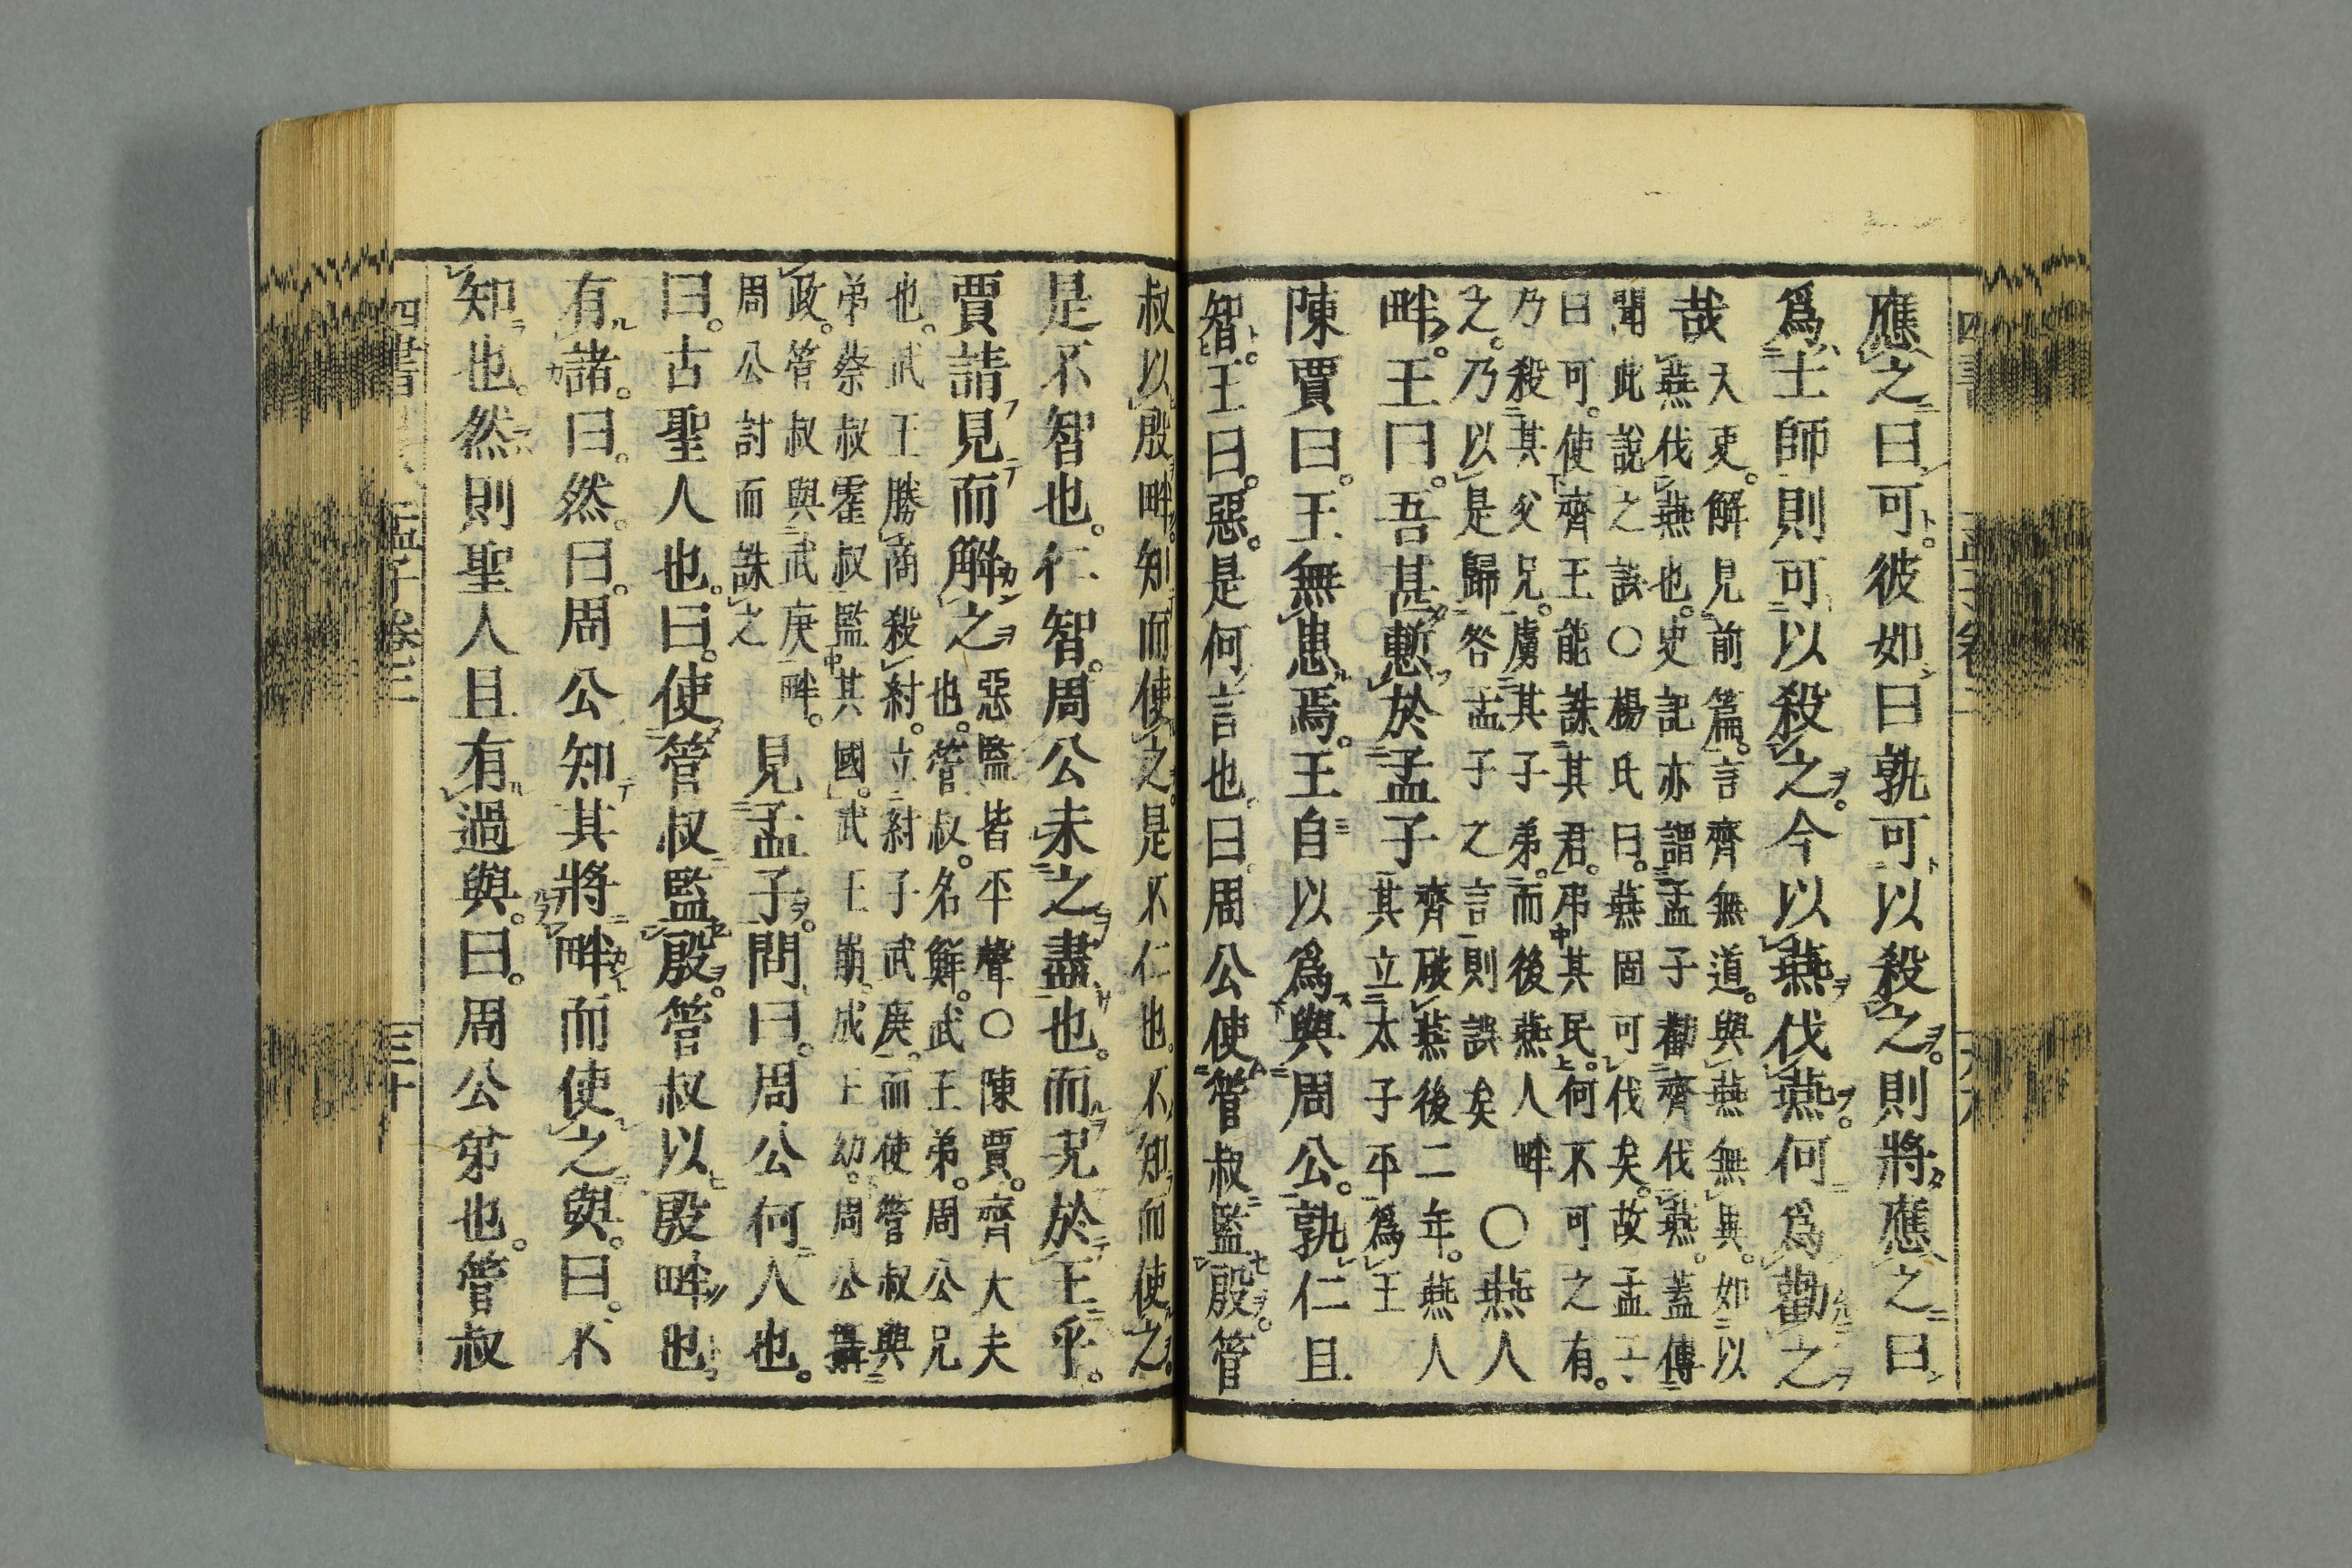 應之曰可彼如曰孰可以殺之則將應之曰
爲士師則可以殺之今以燕伐燕何爲勸之
哉
天吏解見前篇言齊無道與燕無異如以
燕伐燕也史記亦謂孟子勸齊伐燕蓋傳
聞此說之誤○楊氏曰燕固可伐矣故孟子
曰可使齊王能誅其君弔其民何不可之有
乃殺其父兄虜其子弟而後燕人畔
之乃以是歸咎孟子之言則誤矣
○燕人
畔王曰吾甚慙於孟子
齊破燕後二年燕人
其立太子平爲王
陳賈曰王無患焉王自以爲與周公孰仁且
智王曰惡是何言也曰周公使管叔監殷管
叔以殷畔知而使之是不仁也不知而使之
是不智也仁智周公未之盡也而況於王乎
賈請見而解之
惡監皆平聲○陳賈齊大夫
也管叔名鮮武王弟周公兄
也武王勝商殺紂立紂子武庚而使管叔與
弟蔡叔霍叔監其國武王崩成王幼周公攝
政管叔與武庚畔
周公討而誅之
見孟子問曰周公何人也
曰古聖人也曰使管叔監殷管叔以殷畔也
有諸曰然曰周公知其將畔而使之與曰不
知也然則聖人且有過與曰周公弟也管叔
四書
孟子卷三
三十